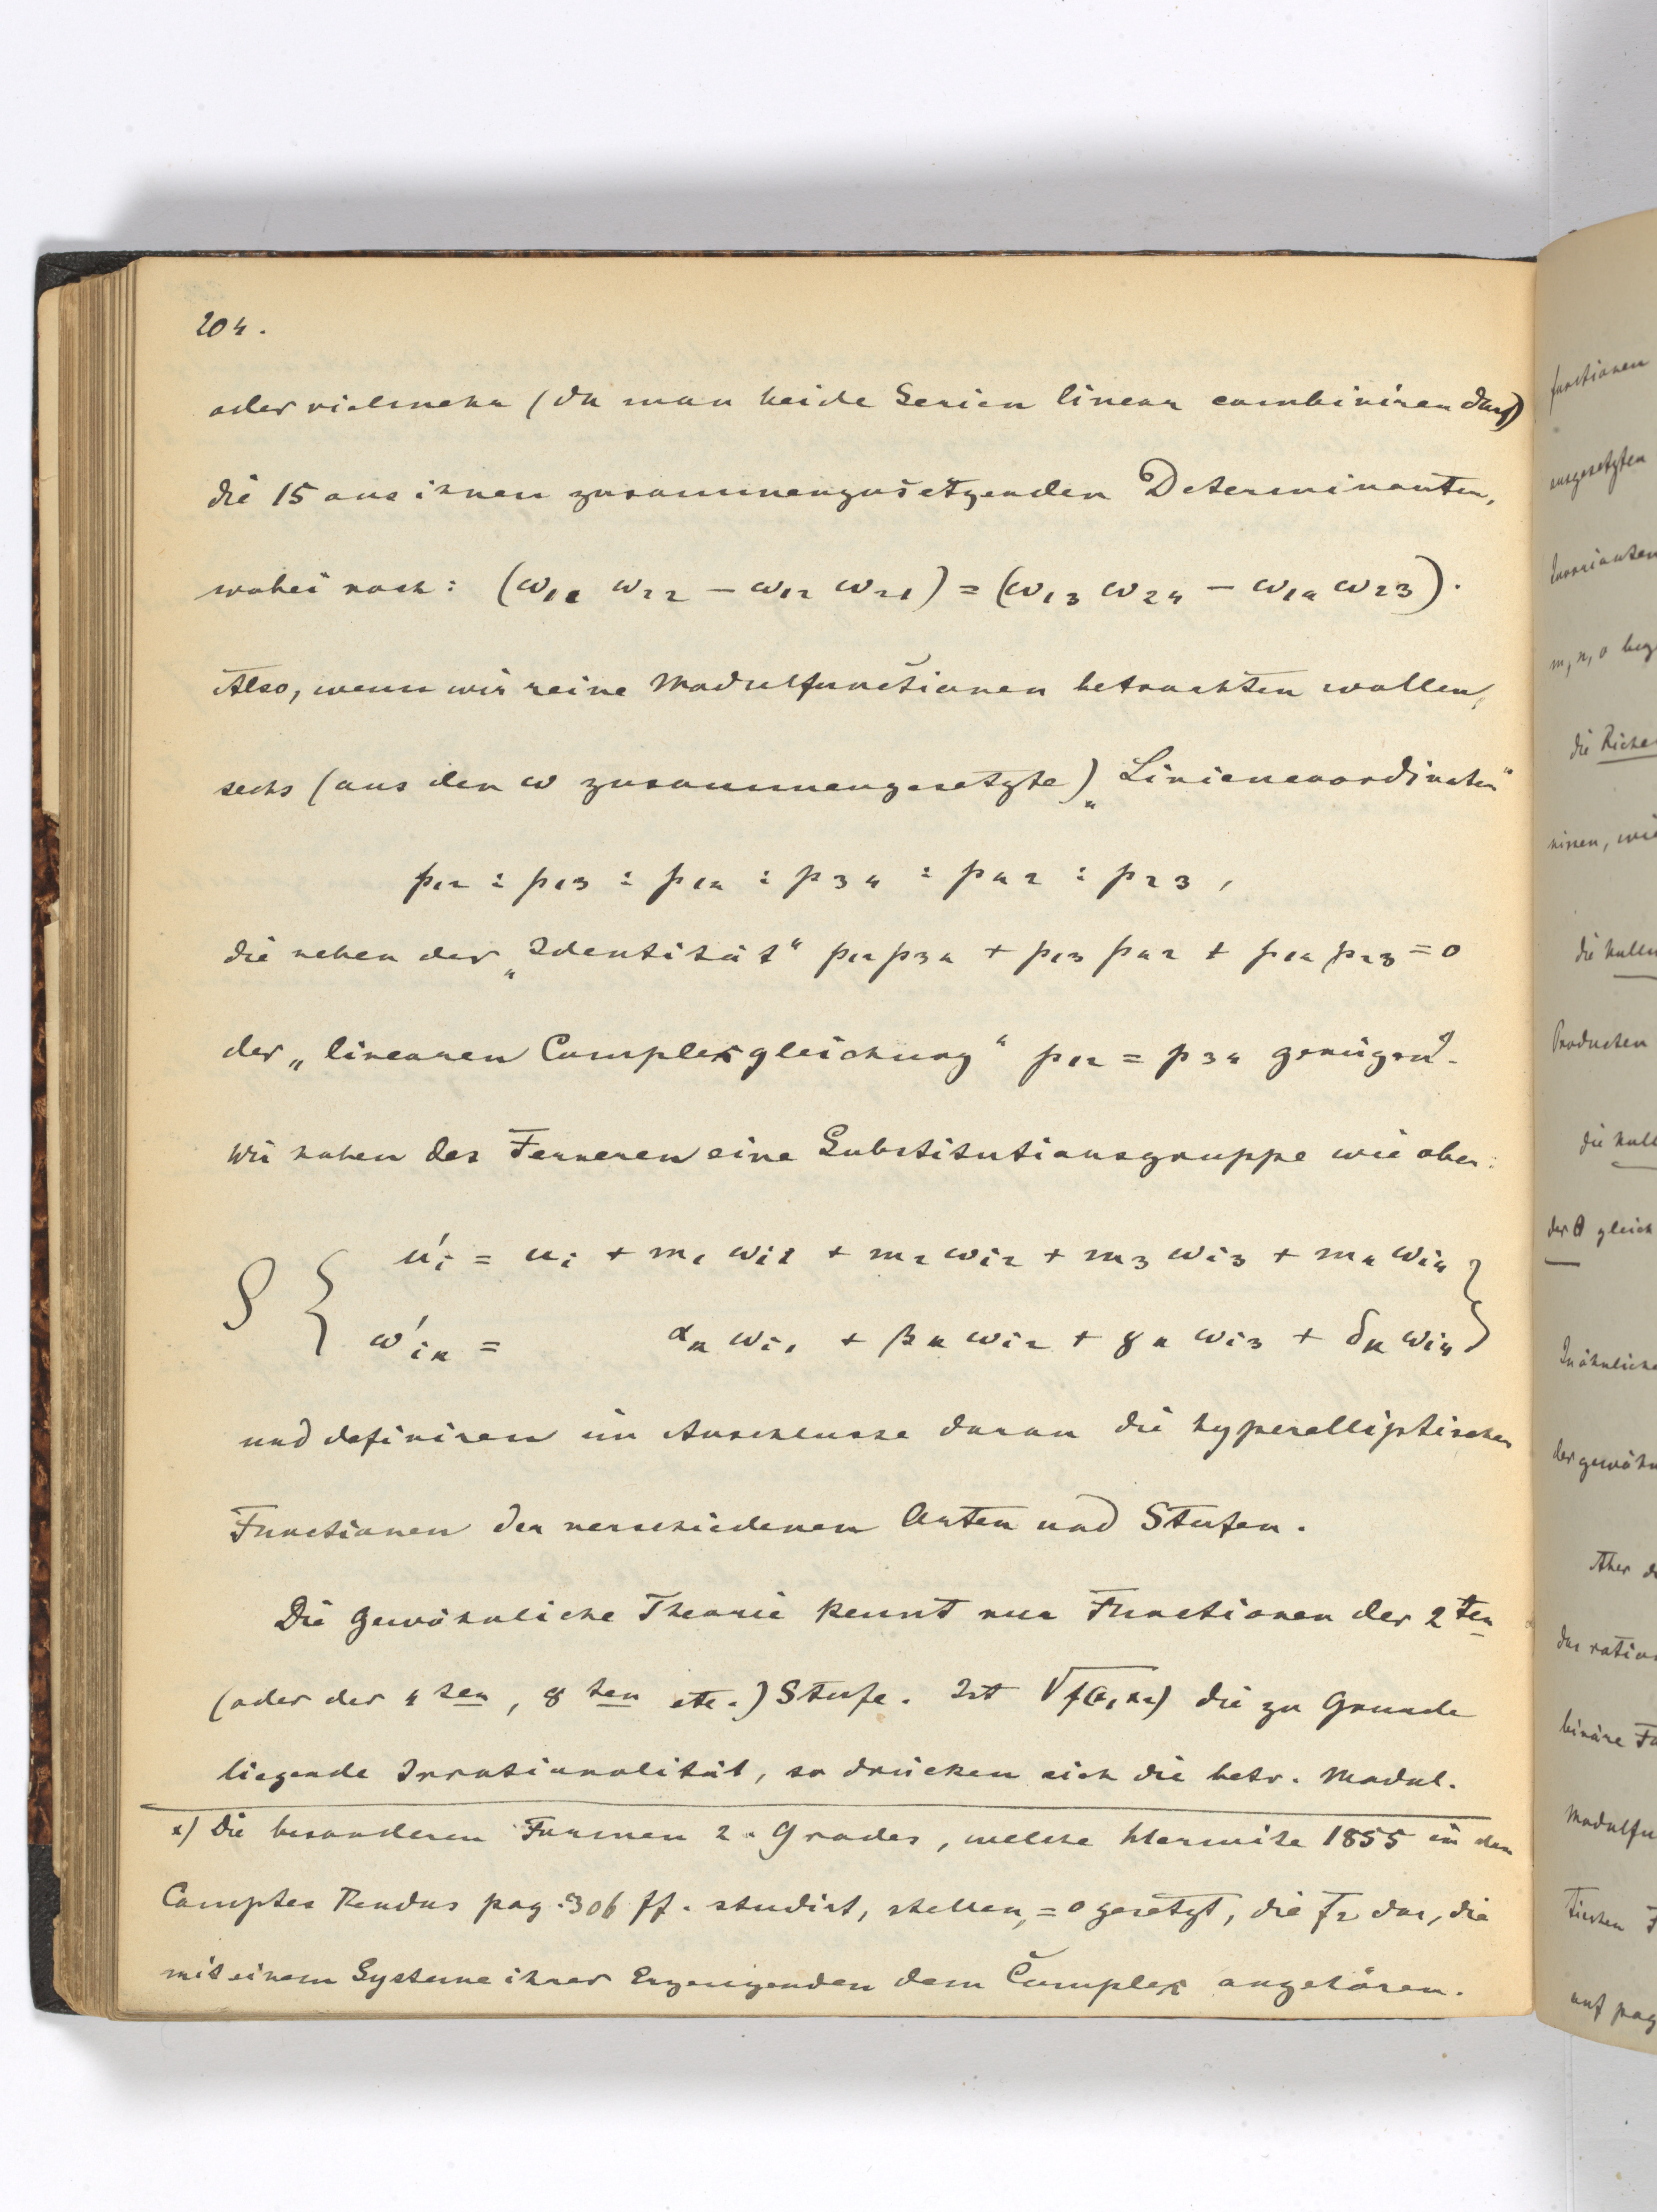 204.
oder vielmehr (da man beide Serien linear combiniren darf)
die 15 aus ihnen zusammenzusetzenden Determinanten,
wobei noch: (ω₁₁ ω₂₂ – ω₁₂ ω₂₁) = (ω₁₃ ω₂₄ – ω₁₄ ω₂₃).
Also, wenn wir reine Modulfunctionen betrachten wollen,
sechs (aus den ω zusammengesetzte) „Liniencoordinaten“
p₁₂ : p₁₃ : p₁₄ : p₃₄ : p₄₂ : p₂₃,
die neben der „Identität“ p₁₂p₃₄ + p₁₃p₄₂ + p₁₄p₂₃ = 0
der „linearen Complexgleichung“ p₁₂ = p₃₄ genügen.
Wir haben des Ferneren eine Substitutionsgruppe wie oben:
u′ᵢ = uᵢ + m₁ ωᵢ₁ + m₂ ωᵢ₂ + m₃ ωᵢ₃ + m₄ ωᵢ₄
ω′ᵢₖ = αₖ ωᵢ₁ + βₖ ωᵢ₂ + γₖ ωᵢ₃ + δₖ ωᵢ₄
und definiren im Anschlusse daran die hyperelliptischen
Functionen der verschiedenen Arten und Stufen.
Die gewöhnliche Theorie kennt nur Functionen der 2ten
(oder der 4ten, 8ten etc.) Stufe. Ist √f(x₁x₂) die zu Grunde
liegende Irrationalität, so drücken sich die betr. Modul.
x) Die besonderen Formen 2. Grades, welche Hermite 1855 in den
Comptes Rendus pag. 306 ff. studirt, stellen, = 0 gesetzt, die F₂ dar, die
mit einem Systeme ihrer Erzeugenden dem Complex angehören.
functionen
ausgesetzten
Invarianten
m, n, o
die
die
Producten
die
der θ gleich
der
Aber
das
binäre
auf pag